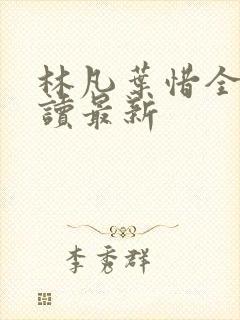 林凡葉惜全
讀最新
李秀群